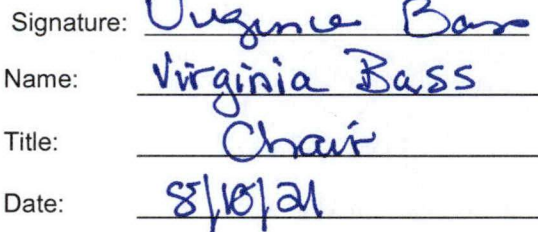 Signature: Virginia Bass
Name: Virginia Bass
Title: Chair
Date: 8/10/21